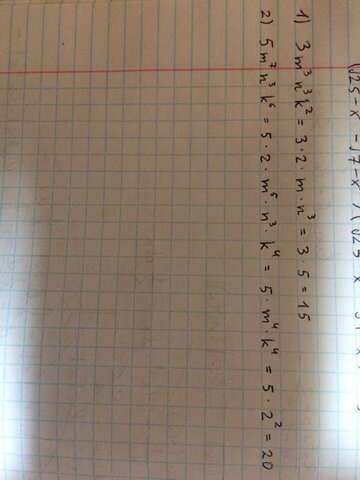 1) 3m³n³k² = 3·2·m·n³ = 3·5 = 15
2) 5m⁷n³k⁶ = 5·2·m⁶·n³·k⁴ = 5·m⁴·k⁴ = 5·2² = 20